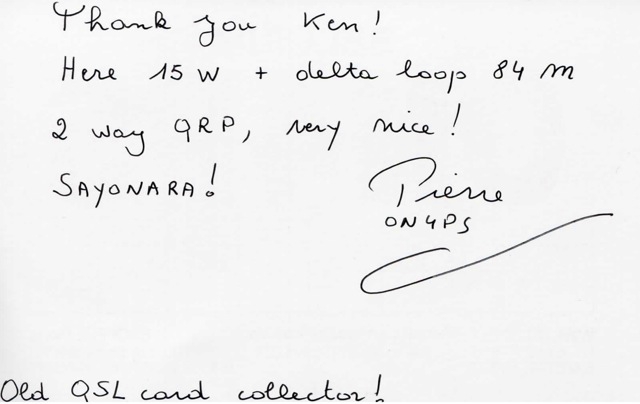 Thank you Ken!
Here 15 W + delta loop 84 m
2 way QRP, very nice!
SAYONARA!
Pierre
ON4PS
Old QSL card collector!